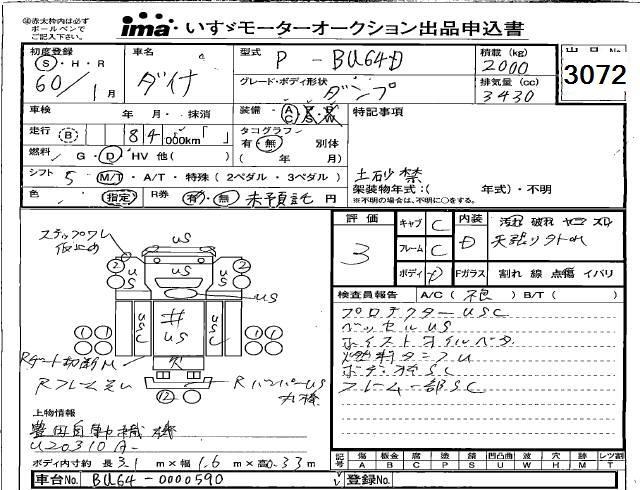 ㊟赤太枠内は必ず
ボールペンで
ご記入下さい。
ima いすゞモーターオークション出品申込書
初度登録
S・H・R
60/1月
車名
ダイナ
型式
P-BU64D
グレード・ボディ形状
ダンプ
積載 (kg)
2000
排気量 (cc)
3430
出品No.
3072
車検 年 月・抹消
装備・
AC
特記事項
走行 B 84,000km「 」
タコグラフ
有・無 別体
( 年 月)
燃料 G・D・HV 他( )
シフト 5 M/T・A/T・特殊 (2ペダル・3ペダル)
土砂禁
架装物年式:( 年式)・不明
※不明の場合は、不明に○をする。
色 指定 R券 有・無 未預託 円
評価
3
キャブ C
フレーム C
ボディ D
内装 D
汚れ 破れ ヤニ スレ
天張り外れ
Fガラス 割れ 線 点傷 イバリ
ステップワレ
仮止め
US
2
2
US
US
US
USC
井
US
USC
1 1
1 1
穴
Rゲート切断M
Rフレーム
RバンパーUS
12
検査員報告 A/C ( ) B/T ( )
プロテクターUSC
ベッセルUS
ホイストオイル
燃料タンクU
SC
フレーム一部SC
上物情報
豊田自動織機
U20310A-
ボディ内寸約 長 3.1 m×幅 1.6 m×高 0.33 m
記号 傷 板金 腐 塗 錆 凹凸曲 波 穴 無 レツ割
A B C P S U W H M T
車台No. BU64-0000590
登録No.